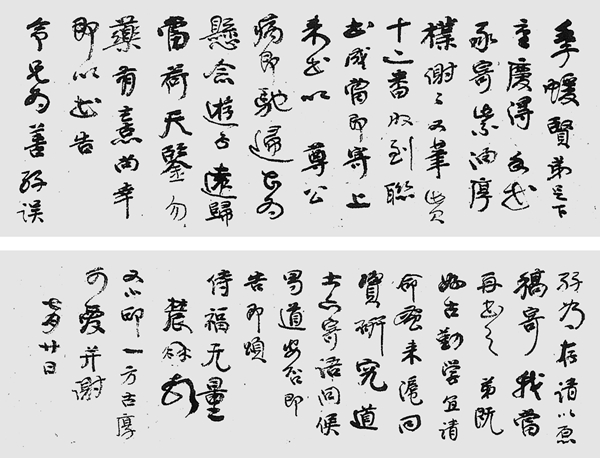 季蝯賢弟足下
重慶得手書
承寄紫油厚
樸謝謝又筆貲
十二番收到聯
書成當即寄上
來書以尊公
病即馳歸至為
懸念游子遠歸
當荷天鑒勿
藥有喜尚幸
即以書告
令兄為善孖誤
孖為存請以原
稿寄我當
再書之弟既
好古勤學宜請
命強來滬同
賢研究道
士亦寄語問候
蜀道安否即
告即頌
侍福无量
農髯
又小印一方古厚
可愛并謝
七月廿日